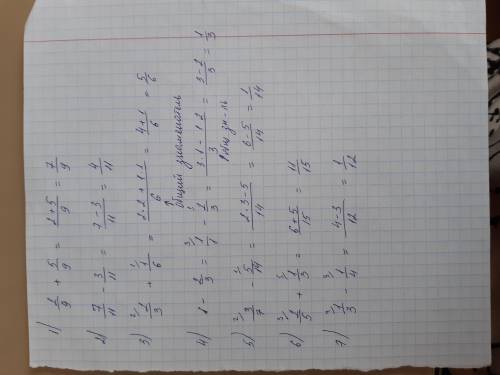 1) 2/9 + 5/9 = (2+5)/9 = 7/9
2) 7/11 - 3/11 = (7-3)/11 = 4/11
3) ²⁾2/3 + ¹⁾1/6 = (2·2+1·1)/6 = (4+1)/6 = 5/6
Общий знаменатель
4) 1 - 2/3 = ³⁾1/1 - ¹⁾2/3 = (3·1-1·2)/3 = (3-2)/3 = 1/3
Общ зн-ль
5) ²⁾3/7 - ¹⁾5/14 = (2·3-5)/14 = (6-5)/14 = 1/14
6) ³⁾2/5 + ⁵⁾1/3 = (6+5)/15 = 11/15
7) ⁴⁾1/3 - ³⁾1/4 = (4-3)/12 = 1/12